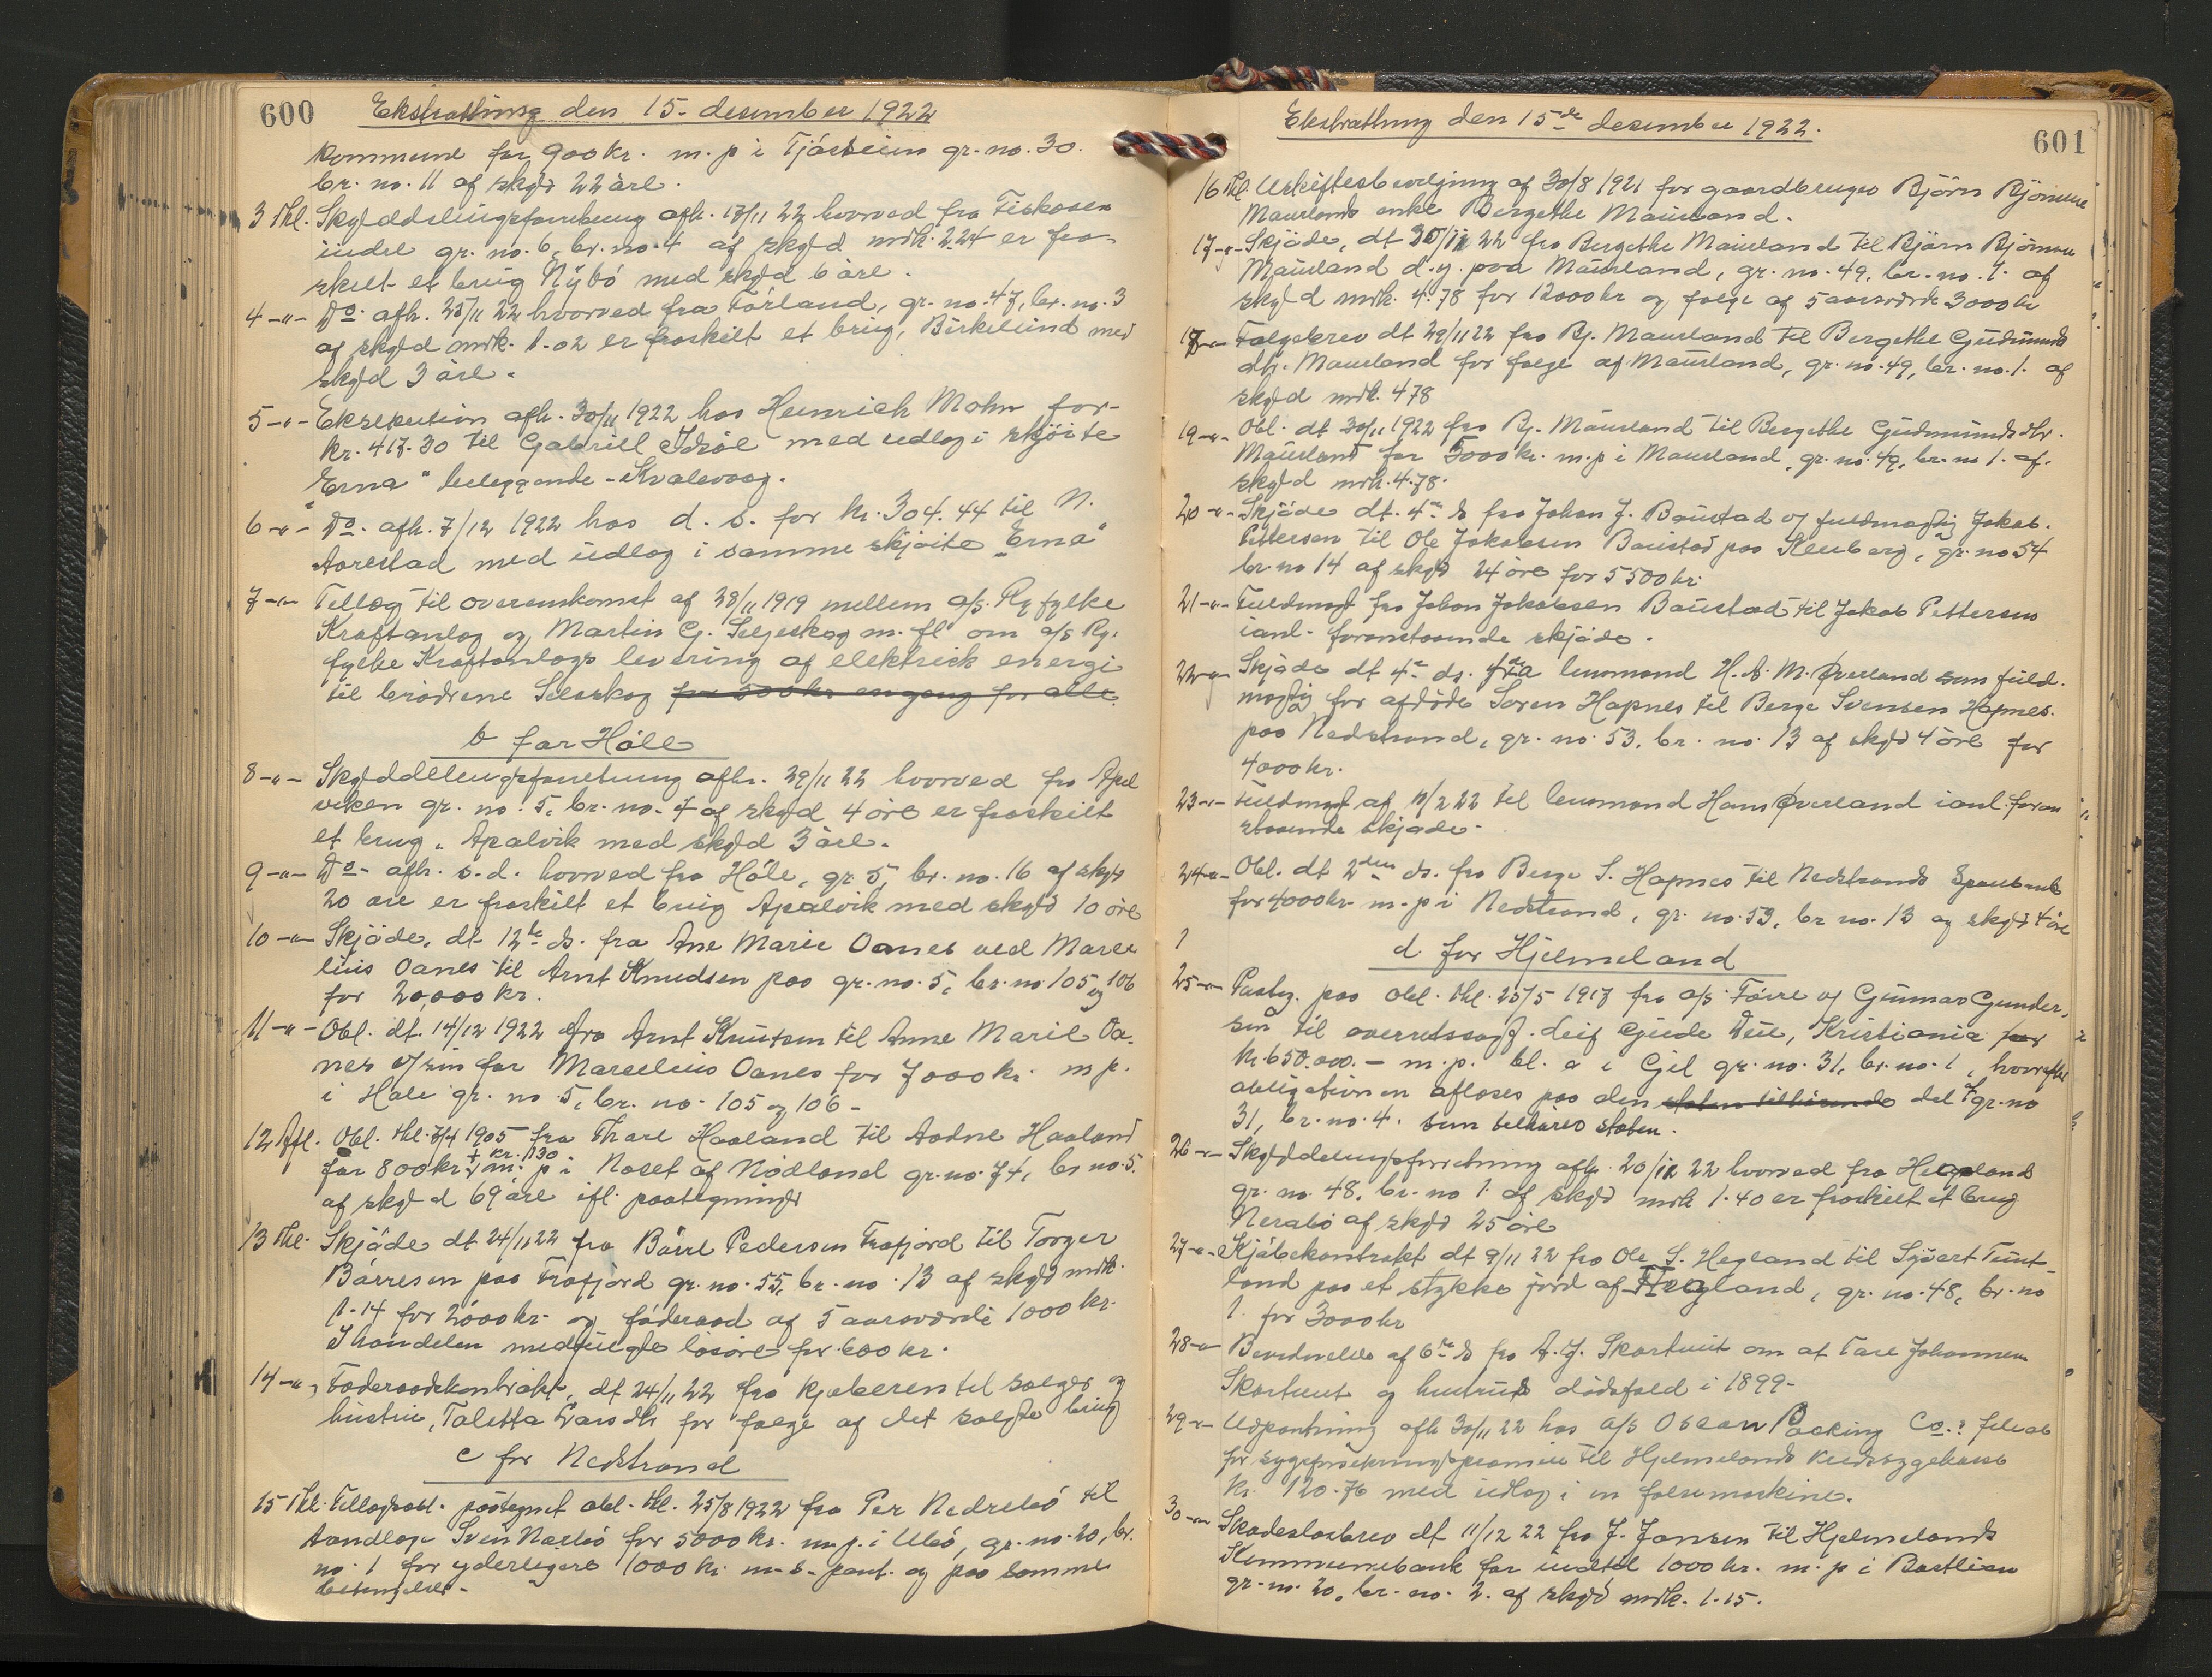 600 Ekstratting den 15. desember 1922
kommune for 900 kr. m. p i Tjøstheim gr. no. 30.
br. no. 11 af skyld 22 øre.
3 Thl. Skylddelingsforretning afh. 17/11 22 hvorved fra Fiskaaen
indre gr. no. 6, br. no. 4 af skyld mrk. 2.24 er fra-
skilt et brug Nybø med skyld 6 øre.
4 -"- Do. afh. 25/11 22 hvorved fra Førland, gr. no. 47, br. no. 3
af skyld mrk. 1-02 er fraskilt et brug, Birkelund med
skyld 3 øre.
5 -"- Eksekution afh. 30/11 1922 hos Heinrich Mohn for-
kr. 417.30 til Gabriell Idsøe med udlæg i skjøite
"Erna" beliggende - Kvalevaag.
6 -"- Do. afh. 7/12 1922 hos d. s. for kr. 304.44 til N.
Aarestad med udlæg i samme skjøite "Erna"
7 -"- Tillæg til overenskomst af 28/11 1919 mellem A/S. Ryfylke
Kraftanlæg og Martin G. Seljeskog m. fl. om A/S Ry-
fylke Kraftanlægs levering af elektrisk energi
til brødrene Selsskog for 500 kr engang for alle.
b for Høle
8 -"- Skylddelingsforretning afh. 29/11 22 hvorved fra Apel
viken gr. no. 5, br. no. 7 af skyld 4 øre er fraskilt
et brug, Apalvik med skyld 3 øre.
9 -"- Do- afh. s. d. hvorved fra Høle, gr. 5, br. no. 16 af skyld
20 øre er fraskilt et brug Apalvik med skyld 10 øre
10 -"- Skjøde, dt 12te ds. fra Ane Marie Oanes ved Marce
lius Oanes til Arnt Knudsen paa gr. no. 5, br. no 105 og 106
for 20,000 kr.
11 -"- Obl. dt. 14/12 1922 fra Arnt Knutsen til Anne Marie Oa-
nes v/sin far Marcelius Oanes for 7000 kr. m p.
i Høle gr. no. 5, br. no. 105 og 106 -
12 Afl. Obl. thl. 7/4 1905 fra Thore Haaland til Aadne Haaland
for 800 kr. + kr. 130 m. p i Noset af Nødland gr. no. 74, br no. 5.
af skyld 69 øre ifl. paategninger
13 Thl. Skjøde dt 24/11 22 fra Børre Pedersen Frafjord til Torger
Børresen paa Frafjord gr. no. 55, br. no. 13 af skyld mrk.
1-14 for 2000 kr. og føderaad af 5 aarsværdi 1000 kr.
I handelen medfulgte løsøre for 600 kr.
14 -"- Føderaadskontrakt, dt 24/11 22 fra kjøberen til sælger og
hustru, Taletta Larsdtr for følge af det solgte brug
c for Nedstrand
15 Thl. Tillægsobl. paategnet obl. thl. 25/8 1922 fra Per Nedrebø til
tandlæge Svein Nærbø for 5000 kr. m. p. i Ulsø, gr. no. 20, br.
no. 1 for yderligere 1000 kr. m. s. pant. og paa samme
betingelser.
Ekstratting den 15de desember 1922. 601
16 Thl. Uskiftesbevilgning af 30/8 1921 for gaardbruger Bjørn Bjørnsen
Maurlands enke Bergethe Maurland.
17 -"- Skjøde, dt 30/11 22 fra Bergethe Maurland til Bjørn Bjørnsen
Maurland d. y. paa Maurland, gr. no. 49, br. no. 1. af
skyld mrk. 4.78 for 12000 kr og følge af 5 aarsværdi 3000 kr
18 -"- Følgebrev dt 29/11 22 fra Bj. Maurland til Bergethe Gudmunds
dtr. Maurland for følge af Maurland, gr. no. 49, br. no. 1. af
skyld mrk. 4.78
19 -"- Obl. dt 30/11 1922 fra Bj. Maurland til Bergethe Gudmundsdtr.
Maurland for 5000 kr. m. p i Maurland, gr. no. 49, br. no 1. af.
skyld mrk. 4.78.
20 -"- Skjøde dt. 4de ds fra Johan J. Baustad v/ fuldmægtig Jakob.
Pettersen til Ole Jakobsen Baustad paa Kleiberg, gr. no 54
br. no 14 af skyld 24 øre for 5500 kr.
21 -"- Fuldmagt fra Johan Jakobsen Baustad til Jakob Pettersen
ianl. foranstaaende skjøde.
22 -"- Skjøde dt 4de ds. fra lensmand H. A. M. Øverland som fuld-
mægtig for afdøde Søren Hapnes til Berge Svensen Hapnes.
paa Nedstrand, gr. no. 53, br. no. 13 af skyld 4 øre for
4000 kr.
23 -"- Fuldmagt af 10/2 22 til lensmand Hans Øverland ianl. foran
staaende skjøde.
24 -"- Obl. dt 2den ds. fra Berge S. Hapnes til Nedstrands Sparebank
for 4000 kr m. p i Nedstrand, gr. no. 53, br no. 13 og skyld 4 øre
d. for Hjelmeland
25 -"- Paateg. paa obl. thl. 25/5 1917 fra A/S Tørre og Gunnar Gunder-
sen til overretssagf. Leif Gude Due, Kristiania for
kr. 650.000.- m. p. bl. a i Gjil gr. no. 31, br. no. 1, hvorefter
obligationen afløses paa den staten tilhørende del gr. no
31, br. no. 4. som tilhører staten.
26 -"- Skylddelingsforretning afh. 20/11 22 hvorved fra Hegeland
gr. no. 48, br. no 1. af skyld mrk 1.40 er fraskilt et brug
Nerabø af skyld 25 øre
27 -"- Kjøbekontrakt dt 9/11 22 fra Ole S. Hegland til Syvert Tunt-
land paa et stykke jord af Hegland, gr. no. 48, br. no
1. for 3000 kr
28 -"- Bevidnelse af 6te ds fra A. J. Skartveit om at Tare Johannesen
Skartveit og hustrus dødsfald i 1899-
29 -"- Udpantning afh 30/11 22 hos A/S Oscan Packing Co.s filial
for sygeforsikringspræmie til Hjelmelands kredssygekasse
kr. 120.76 med udlæg i en falsemaskine.
30 -"- Skadesløsbrev dt 11/12 22 fra J. Jansen til Hjelmelands
Kommunebank for indtil 1000 kr. m. p i Bastlien
gr. no. 20, br. no. 2. af skyld mrk. 1.15.